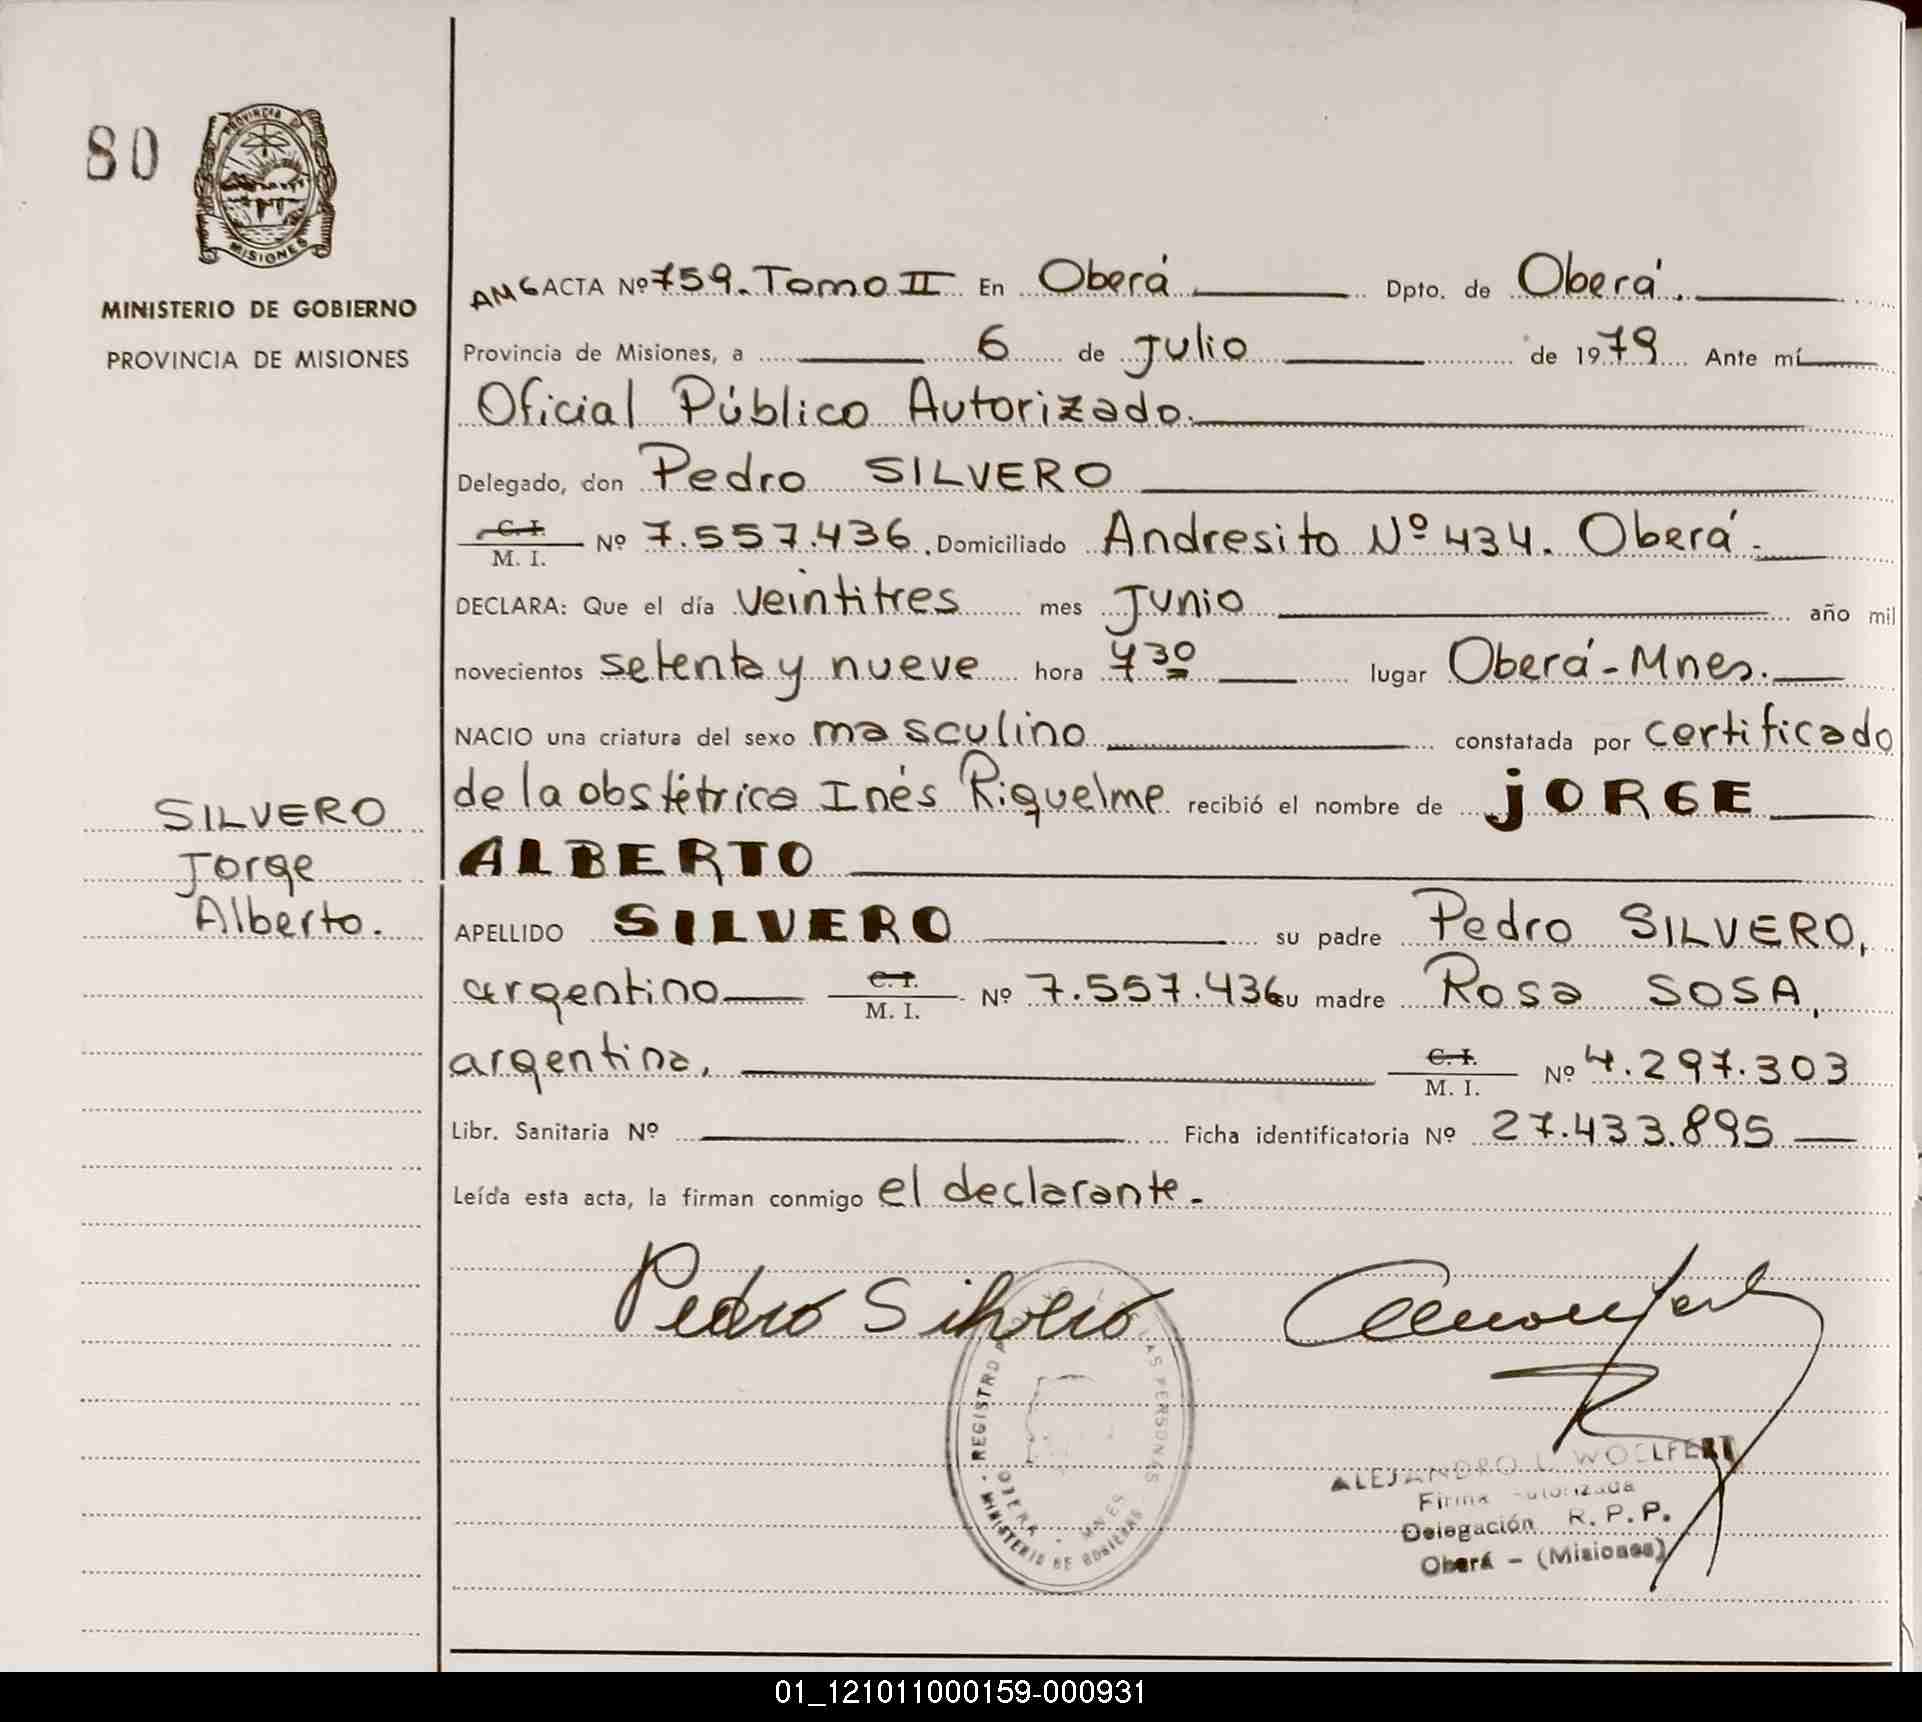 80
PROVINCIA DE
MISIONES
MINISTERIO DE GOBIERNO
PROVINCIA DE MISIONES
AMG ACTA Nº 759. Tomo II En Oberá Dpto. de Oberá.
Provincia de Misiones, a 6 de Julio de 1979 Ante mí
Oficial Público Autorizado.
Delegado, don Pedro SILVERO
C. I.
M. I. Nº 7.557.436. Domiciliado Andresito Nº 434. Oberá.
DECLARA: Que el día veintitres mes Junio año mil
novecientos setenta y nueve hora 7 30 lugar Oberá - Mnes.
NACIO una criatura del sexo masculino constatada por certificado
de la obstétrica Inés Riquelme recibió el nombre de jORGE
ALBERTO
SILVERO
Jorge
Alberto.
APELLIDO SILVERO su padre Pedro SILVERO,
argentino C. I.
M. I. Nº 7.557.436 su madre Rosa SOSA,
argentina, C. I.
M. I. Nº 4.297.303
Libr. Sanitaria Nº Ficha identificatoria Nº 27.433.895
Leída esta acta, la firman conmigo el declarante.-
Pedro Silvero
REGISTRO DE LAS PERSONAS
OBERA - MNES
MINISTERIO DE GOBIERNO
ALEJANDRO L. WOELFERT
Firma Autorizada
Delegación R. P. P.
Oberá - (Misiones)
01_121011000159-000931